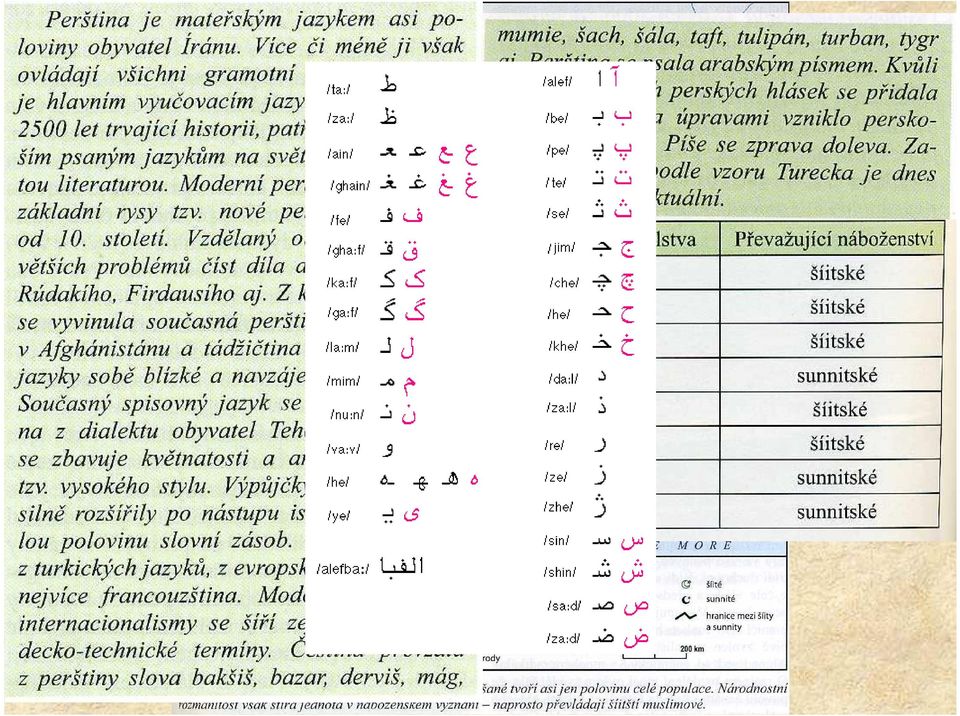 Perština je mateřským jazykem asi po-
loviny obyvatel Íránu. Více či méně ji však
ovládají všichni gramotní
je hlavním vyučovacím
2500 let trvající historii,
ším psaným jazykům na
tou literaturou. Moderní
základní rysy tzv. nové
od 10. století. Vzdělaný
větších problémů číst díla
Rúdakího, Firdausího aj. Z
se vyvinula současná
v Afghánistánu a tádžičtina
jazyky sobě blízké a
Současný spisovný jazyk se
na z dialektu obyvatel
se zbavuje květnatosti a
tzv. vysokého stylu. Výpůjčky
silně rozšířily po nástupu
lou polovinu slovní zásob.
z turkických jazyků, z
nejvíce francouzština.
internacionalismy se šíří
decko-technické termíny.
z perštiny slova bakšiš, bazar, derviš, mág,
mumie, šach, šála, taft, tulipán, turban, tygr
aj. Perština se psala arabským písmem. Kvůli
perských hlásek se přidala
a úpravami vzniklo persko-
Píše se zprava doleva. Za-
podle vzoru Turecka je dnes
/ta:/ ط
/za:/ ظ
/ain/ ﻌ ﻋ ﻊ ع
/ghain/ ﻐ ﻏ ﻎ غ
/fe/ ﻓ ف
/gha:f/ ﻗ ق
/ka:f/ ﮐ ک
/ga:f/ ﮔ گ
/la:m/ ﻟ ل
/mim/ ﻣ م
/nu:n/ ﻧ ن
/va:v/ و
/he/ ﻪ ﻬ ﻫ ه
/ye/ ﻳ ی
/alefba:/ الفبا
/alef/ ا آ
/be/ ﺑ ب
/pe/ ﭘ پ
/te/ ﺗ ت
/se/ ﺛ ث
/jim/ ﺟ ج
/che/ ﭼ چ
/he/ ﺣ ح
/khe/ ﺧ خ
/da:l/ د
/za:l/ ذ
/re/ ر
/ze/ ز
/zhe/ ژ
/sin/ ﺳ س
/shin/ ﺷ ش
/sa:d/ ﺻ ص
/za:d/ ﺿ ض
Převažující náboženství
šíitské
šíitské
šíitské
sunnitské
šíitské
šíitské
sunnitské
sunnitské
MORE
šíité
sunnité
hranice mezi šíity
a sunnity
200 km
tvoří asi jen polovinu celé populace. Národnostní
rozmanitost však stírá jednota v náboženském vyznání – naprosto převládají šíitští muslimové.